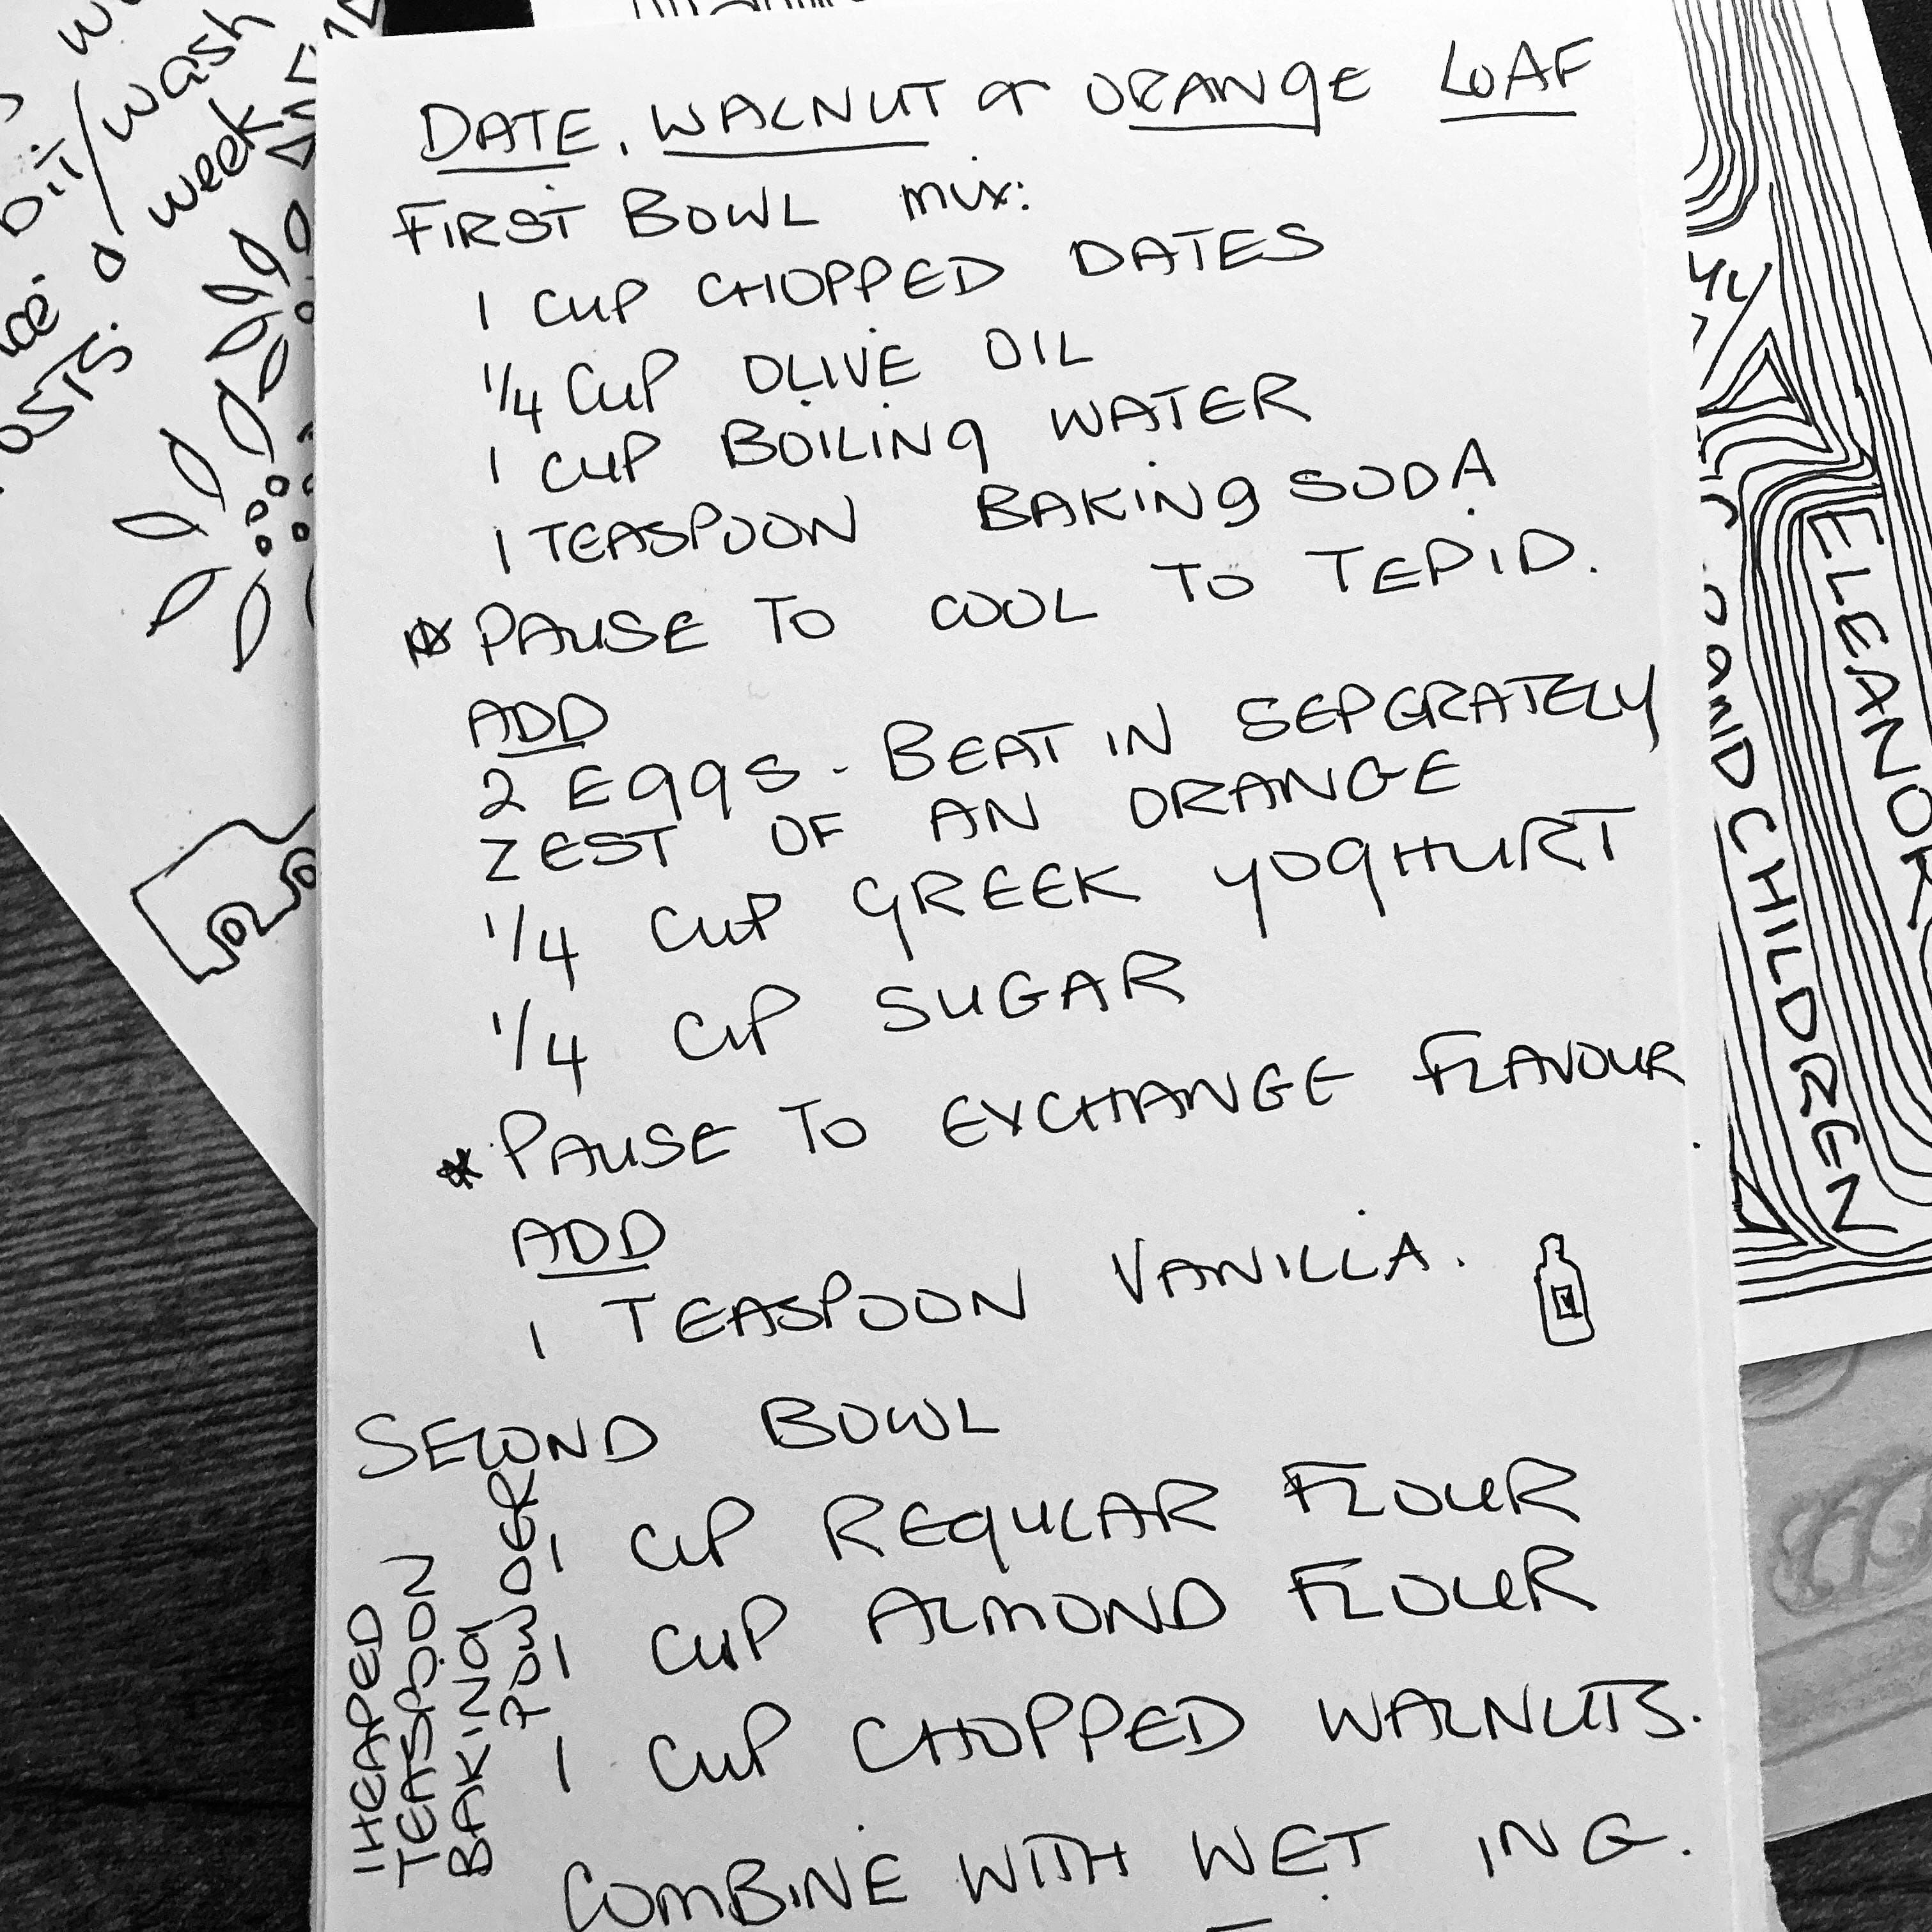 DATE, WALNUT & ORANGE LOAF
FIRST BOWL mix:
1 CUP CHOPPED DATES
1/4 CUP OLIVE OIL
1 CUP BOILING WATER
1 TEASPOON BAKING SODA
* PAUSE TO COOL TO TEPID.
ADD
2 EGGS - BEAT IN SEPGRATELY
ZEST OF AN ORANGE
1/4 CUP GREEK YOGHURT
1/4 CUP SUGAR
* PAUSE TO EXCHANGE FLAVOUR.
ADD
1 TEASPOON VANILLA.
V
SECOND BOWL
1 CUP REGULAR FLOUR
1 CUP ALMOND FLOUR
1 CUP CHOPPED WALNUTS.
COMBINE WITH WET ING.
1 HEAPED
TEASPOON
BAKING
POWDER
/wash
a week
ELEANOR
CHILDREN